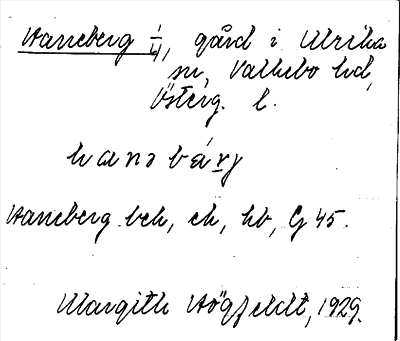 Haneberg 1/4, gård i Ulrika
sn, Valkebo hd,
Österg. l.
hanəbárj
Haneberg bch, ch, hb, G 45.
Margith Högfeldt, 1929.